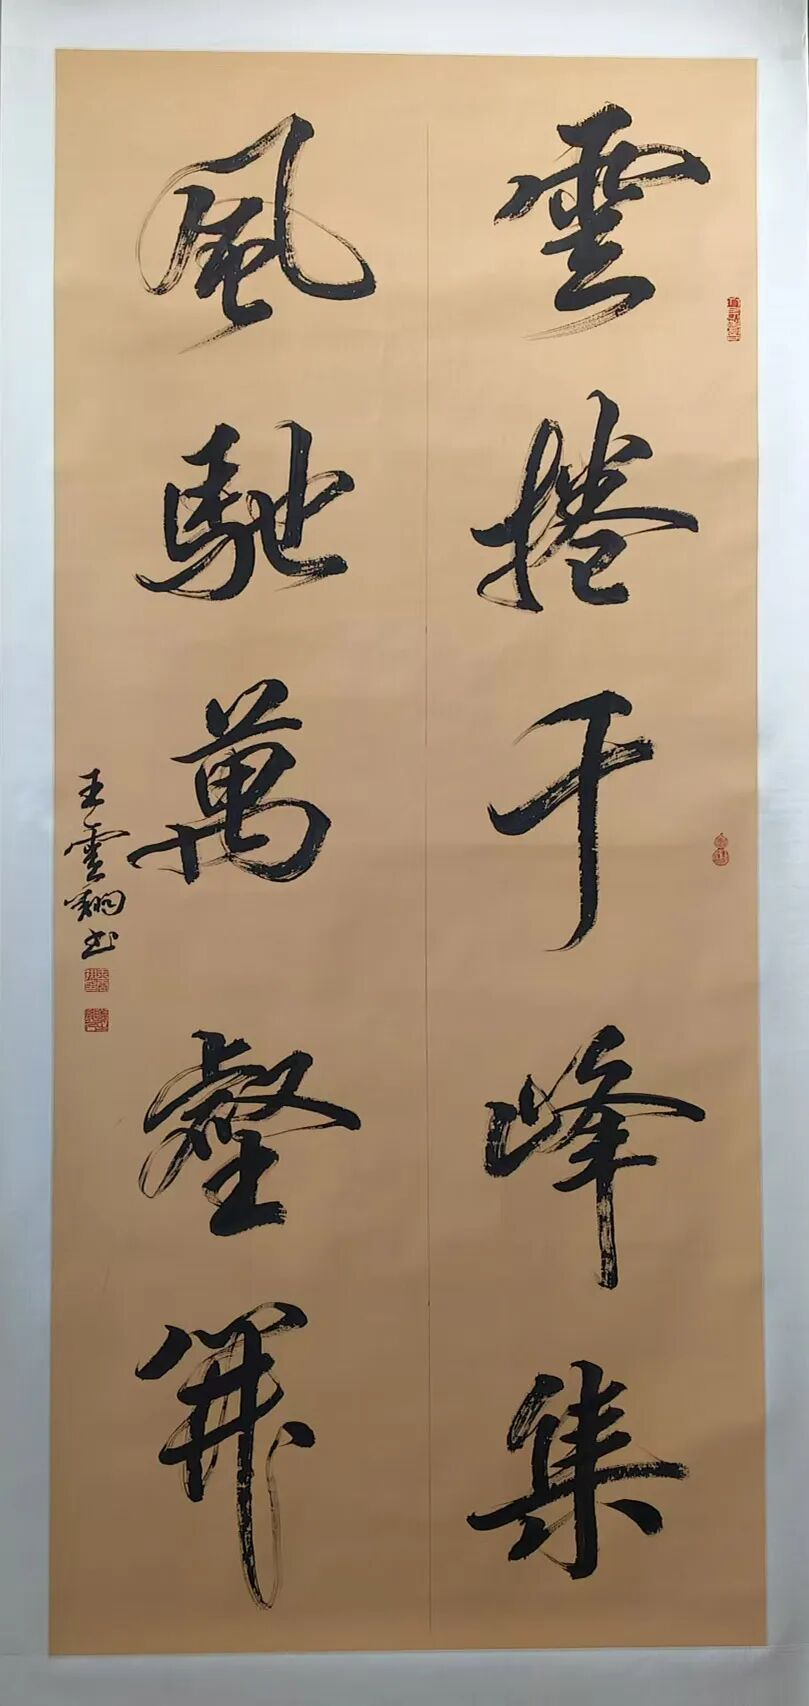 雲捲千峰集
風馳萬壑開
王雲翔书